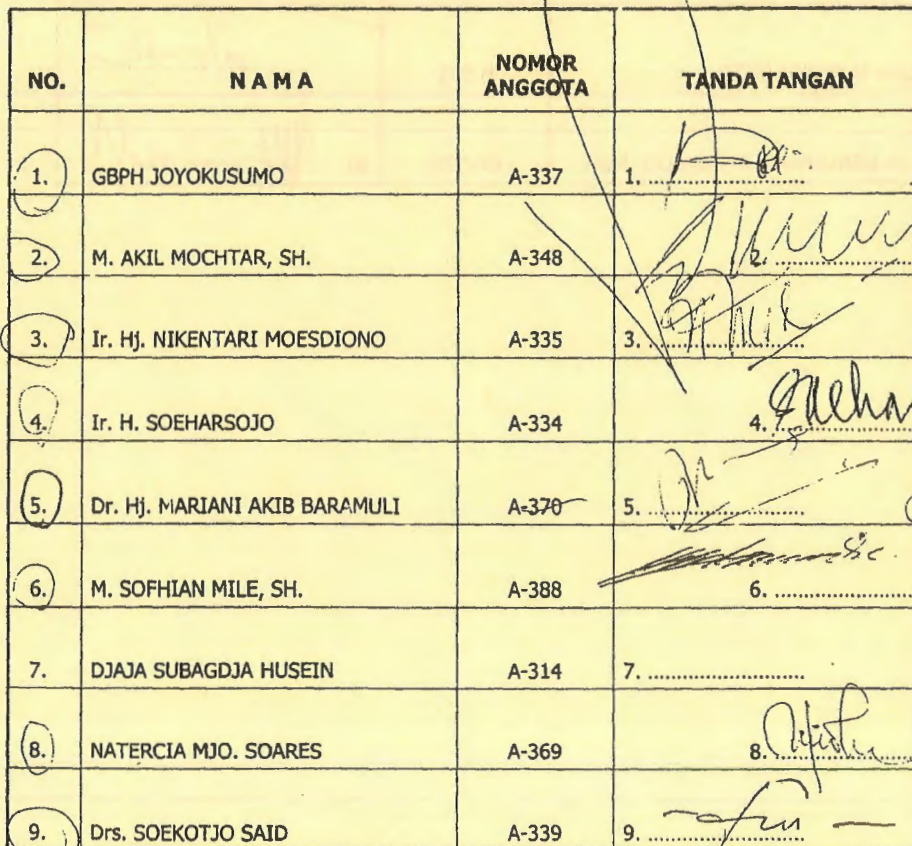 NO. N A M A NOMOR ANGGOTA TANDA TANGAN
1. GBPH JOYOKUSUMO A-337 1. ....................
2. M. AKIL MOCHTAR, SH. A-348 2. ....................
3. Ir. Hj. NIKENTARI MOESDIONO A-335 3. ....................
4. Ir. H. SOEHARSOJO A-334 4. ....................
5. Dr. Hj. MARIANI AKIB BARAMULI A-370 5. ....................
6. M. SOFHIAN MILE, SH. A-388 6. ....................
7. DJAJA SUBAGDJA HUSEIN A-314 7. ....................
8. NATERCIA MJO. SOARES A-369 8. ....................
9. Drs. SOEKOTJO SAID A-339 9. ....................